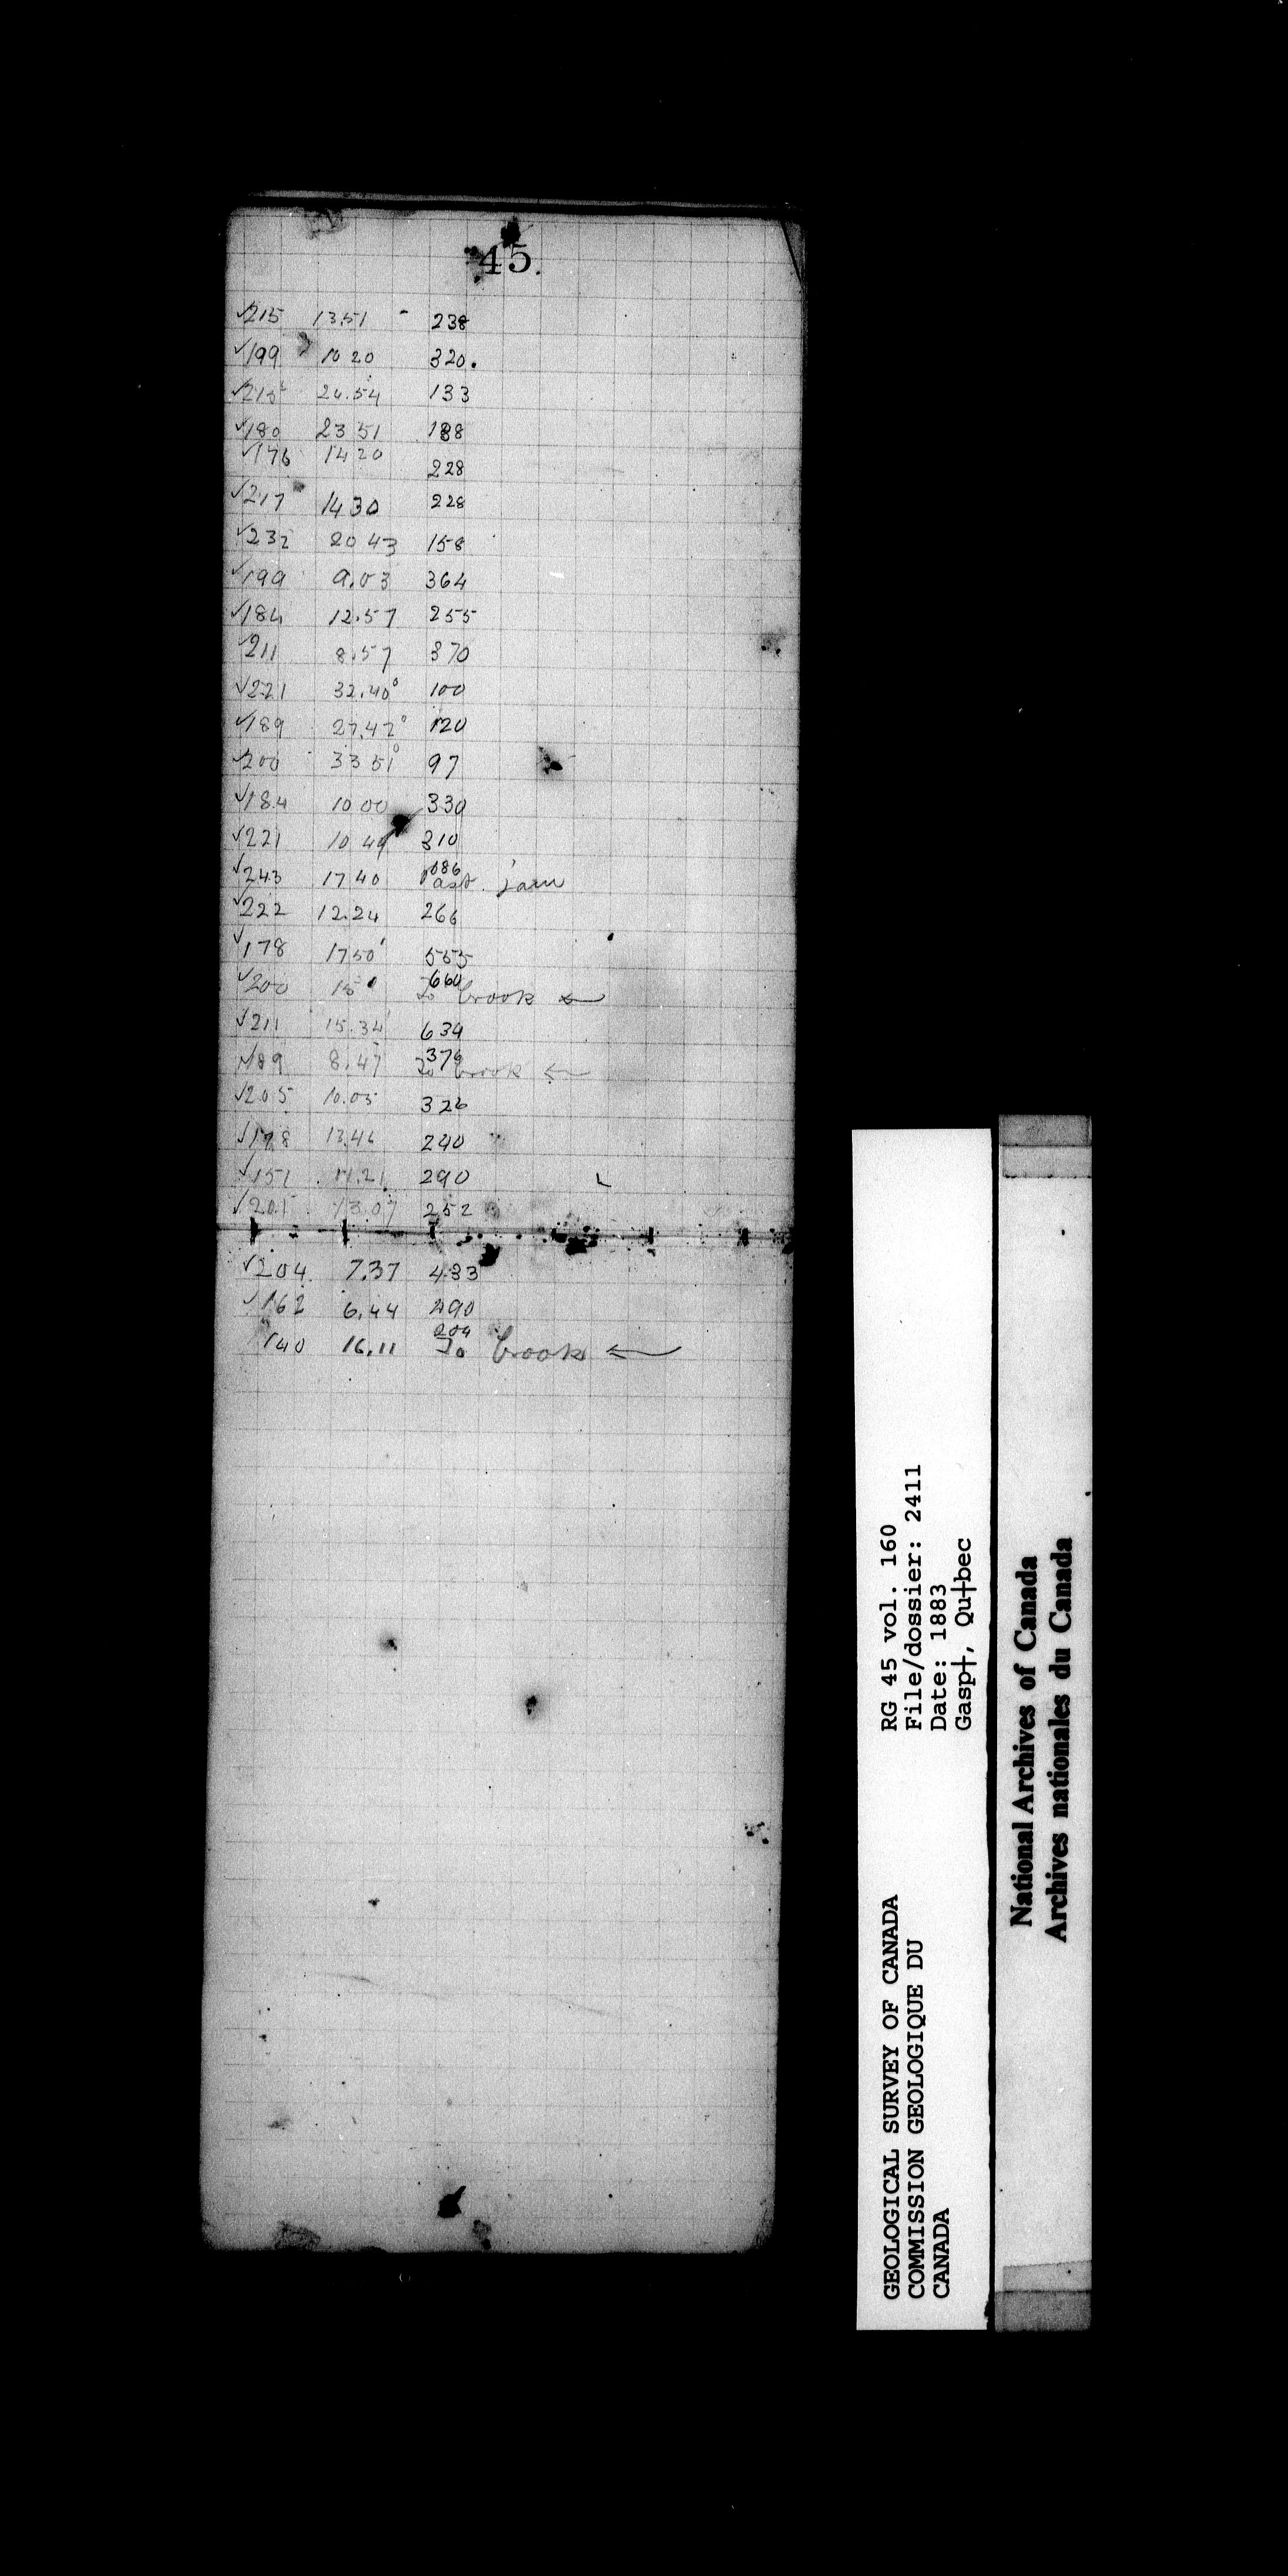 45.
✓215 13.51 - 238
✓199 10 20 320.
24.54 133
✓180 23 51 188
✓176 14 20 228
✓217 14 30 228
✓232 20 43 158
✓199 9.03 364
✓184 12.57 255
211 8.57 370
✓221 32.40° 100
✓189 27.42° 120
✓200 33 51° 97
✓184 10 00 330
✓221 10 49 310
✓243 17 40 686
Past jam
✓222 12.24 266
✓178 17 50' 553
✓200 15 660
To brook ←
✓211 15.34' 634
✓189 8.47 376
To brook ←
✓205 10.05 326
✓178 13.46 240
✓151 11.21 290
✓201 13.07 252
✓204 7.37 433
✓162 6.44 490
140 16.11 204
To brook ←
RG 45 vol. 160
File/dossier: 2411
Date: 1883
Gasp†, Qu†bec
GEOLOGICAL SURVEY OF CANADA
COMMISSION GEOLOGIQUE DU
CANADA
National Archives of Canada
Archives nationales du Canada